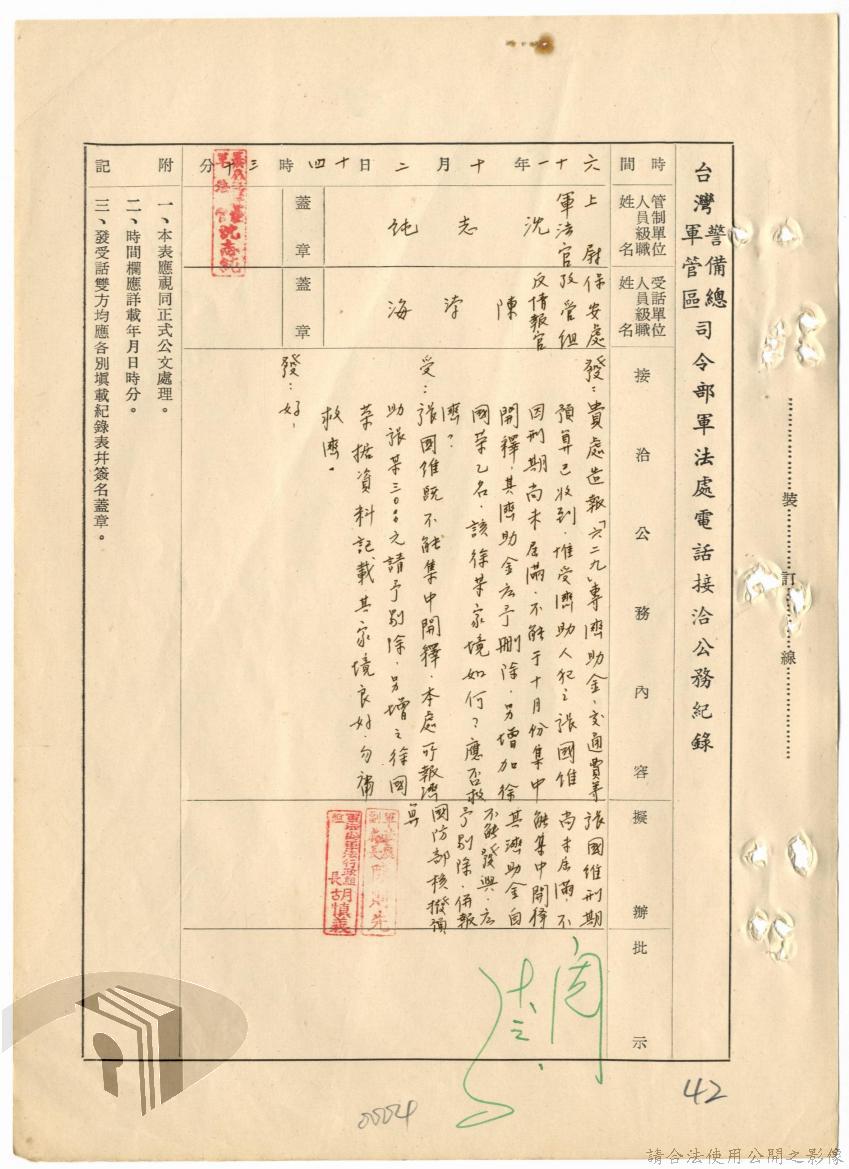 台灣警備總軍管區司令部軍法處電話接洽公務紀錄
時間
管制單位人員級職姓名
受話單位人員級職姓名
接洽公務內容
擬辦
批示
六十一年十月二日十四時三十分
上尉軍法官
沈志純
蓋章
保安處政管組反情報官
陳淳海
蓋章
發：貴處造報「六二九」專濟助金、交通費等
預算已收到，惟受濟助人犯之張國維
因刑期尚未屆滿，不能于十月份集中
開釋，其濟助金應予刪除，另增加徐
國榮乙名，該徐某家境如何？應否救
濟？
受：張國維既不能集中開釋，本處所報濟
助張某300元請予剔除，另增之徐國
榮據資料記載其家境良好，勿需
救濟。
發：好，
張國維刑期
尚未屆滿，不
能集中開釋
其濟助金自
不能發與，應
予剔除，併報
國防部核撥預
算
長胡慎義
附記
一、本表應視同正式公文處理。
二、時間欄應詳載年月日時分。
三、發受話雙方均應各別填載紀錄表幷簽名蓋章。
裝訂線
42
0004
請合法使用公開之影像